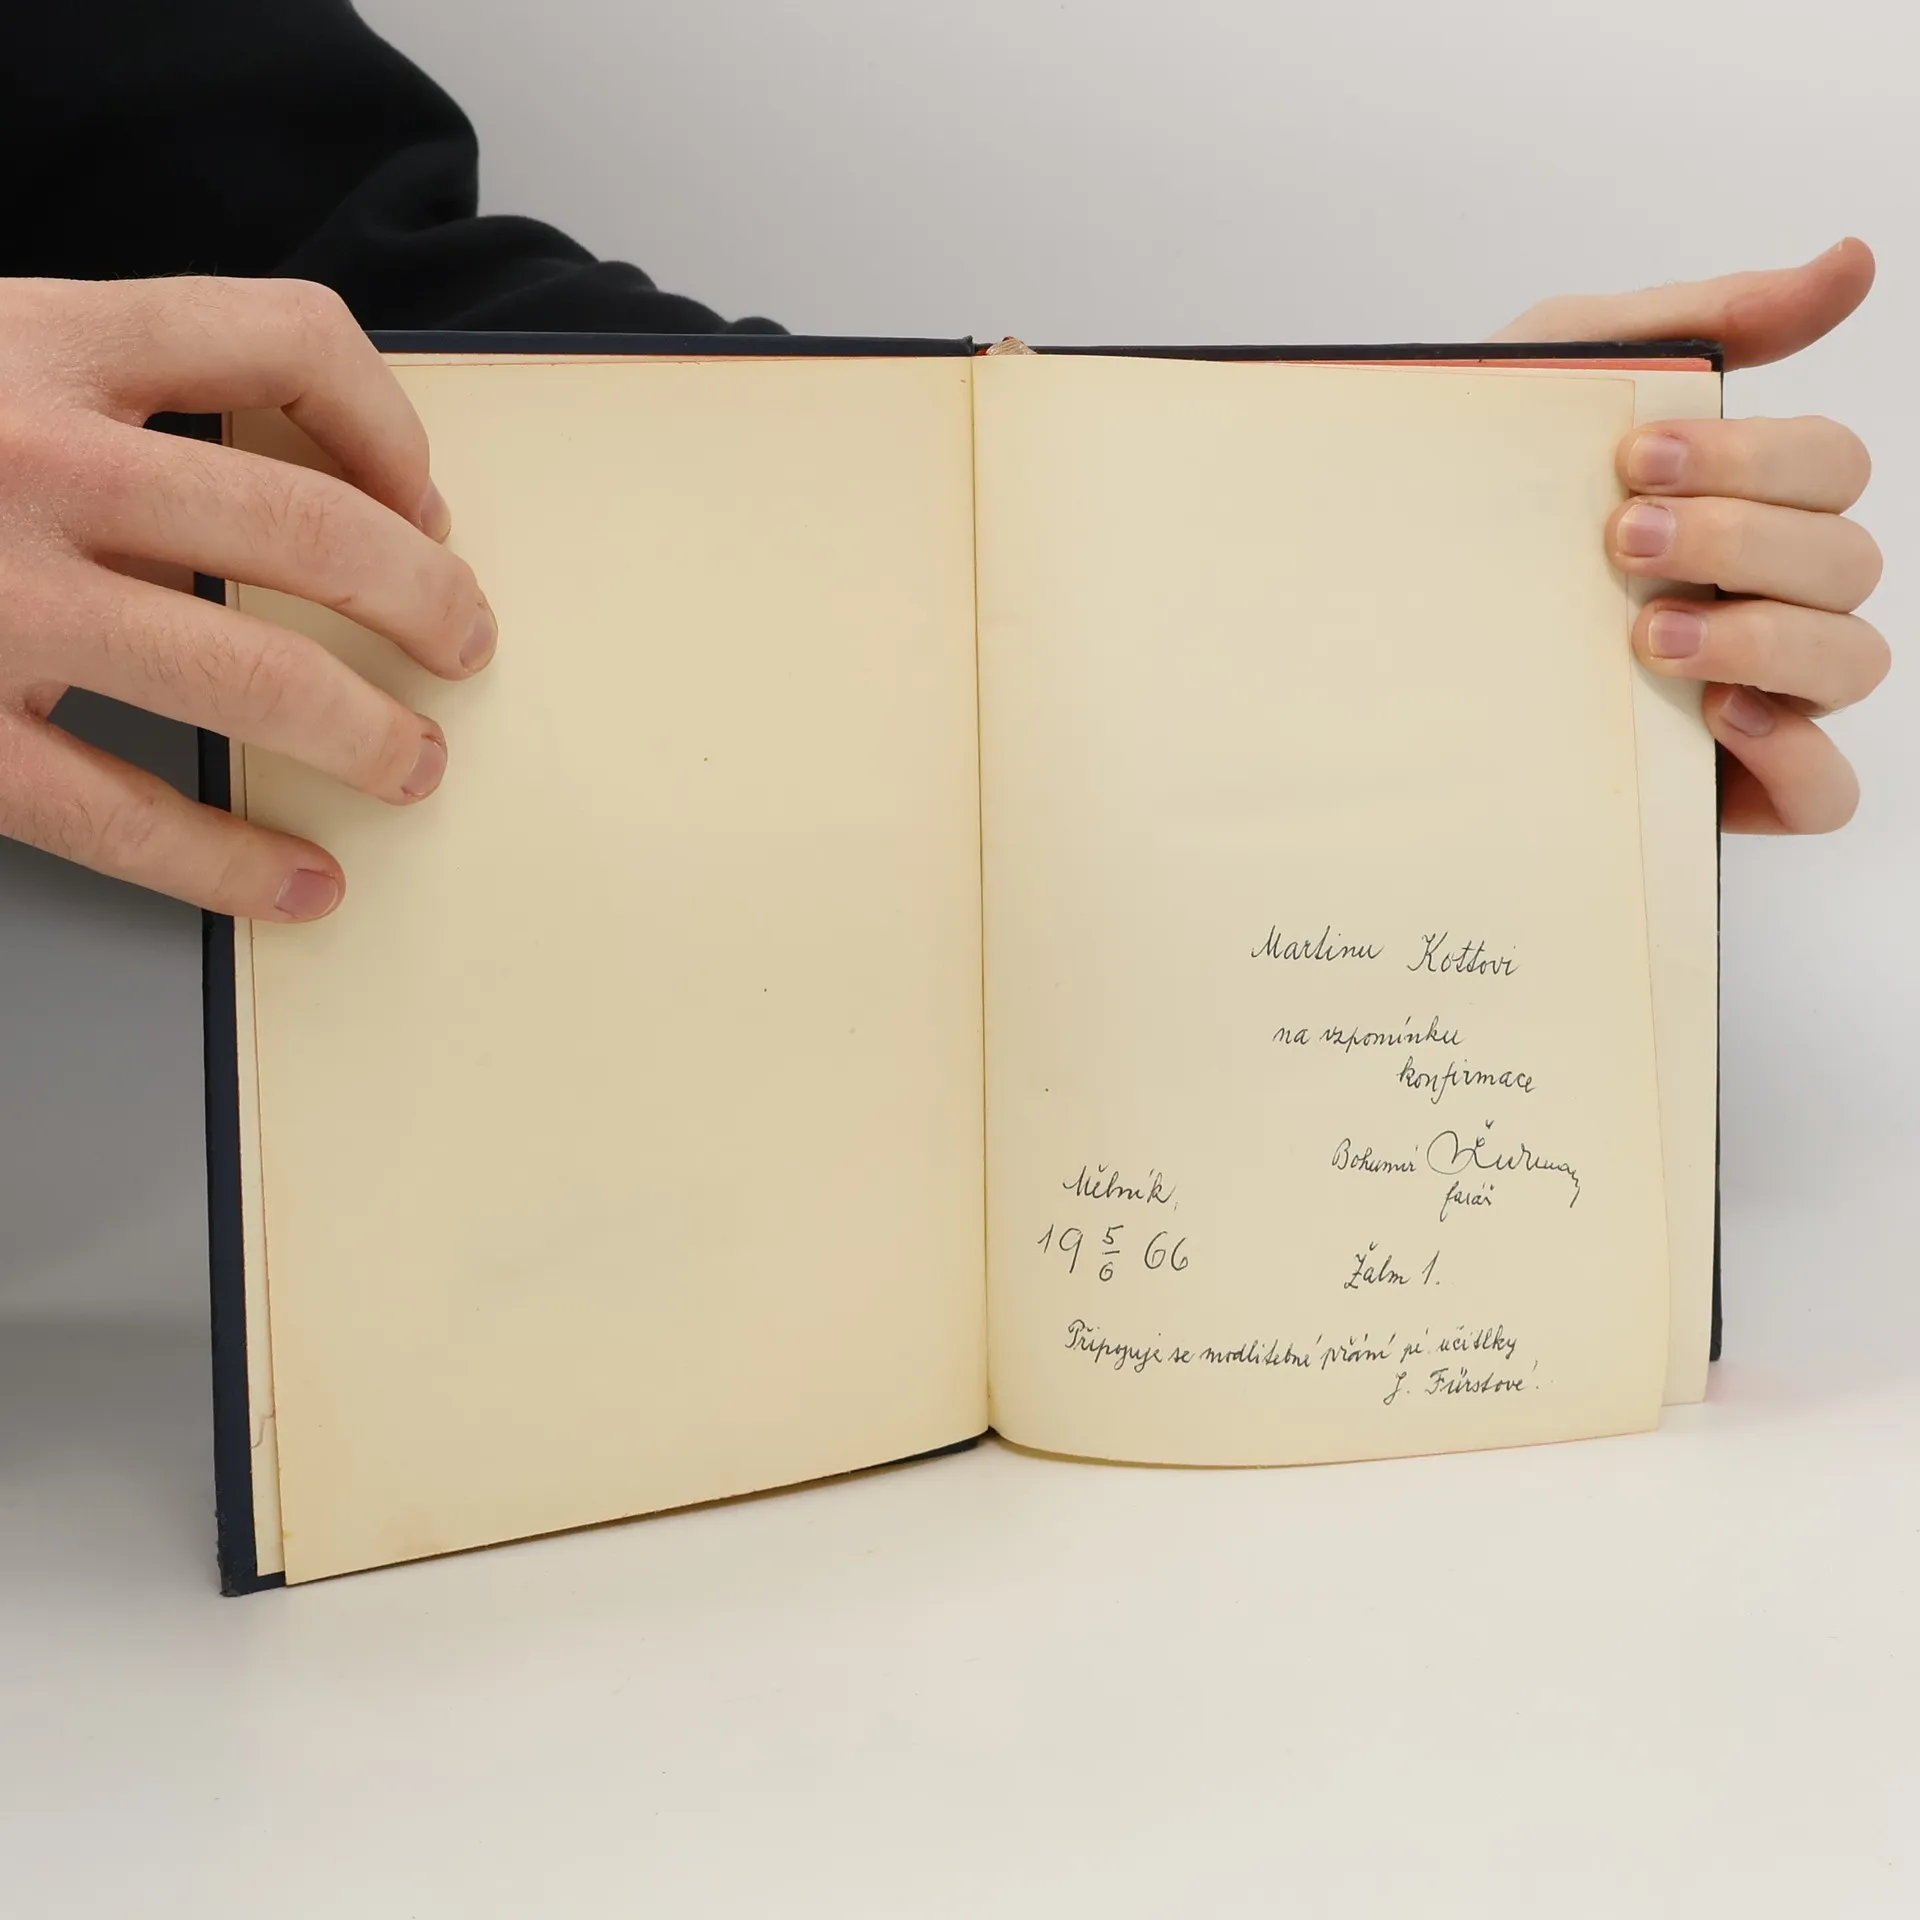 Martinu Kottovi
na vzpomínku
konfirmace
Bohumír
farář
Mělník,
19 5/6 66
Žalm 1.
Připojuje se modlitebné přání pí. učitelky
J. Fürstové.